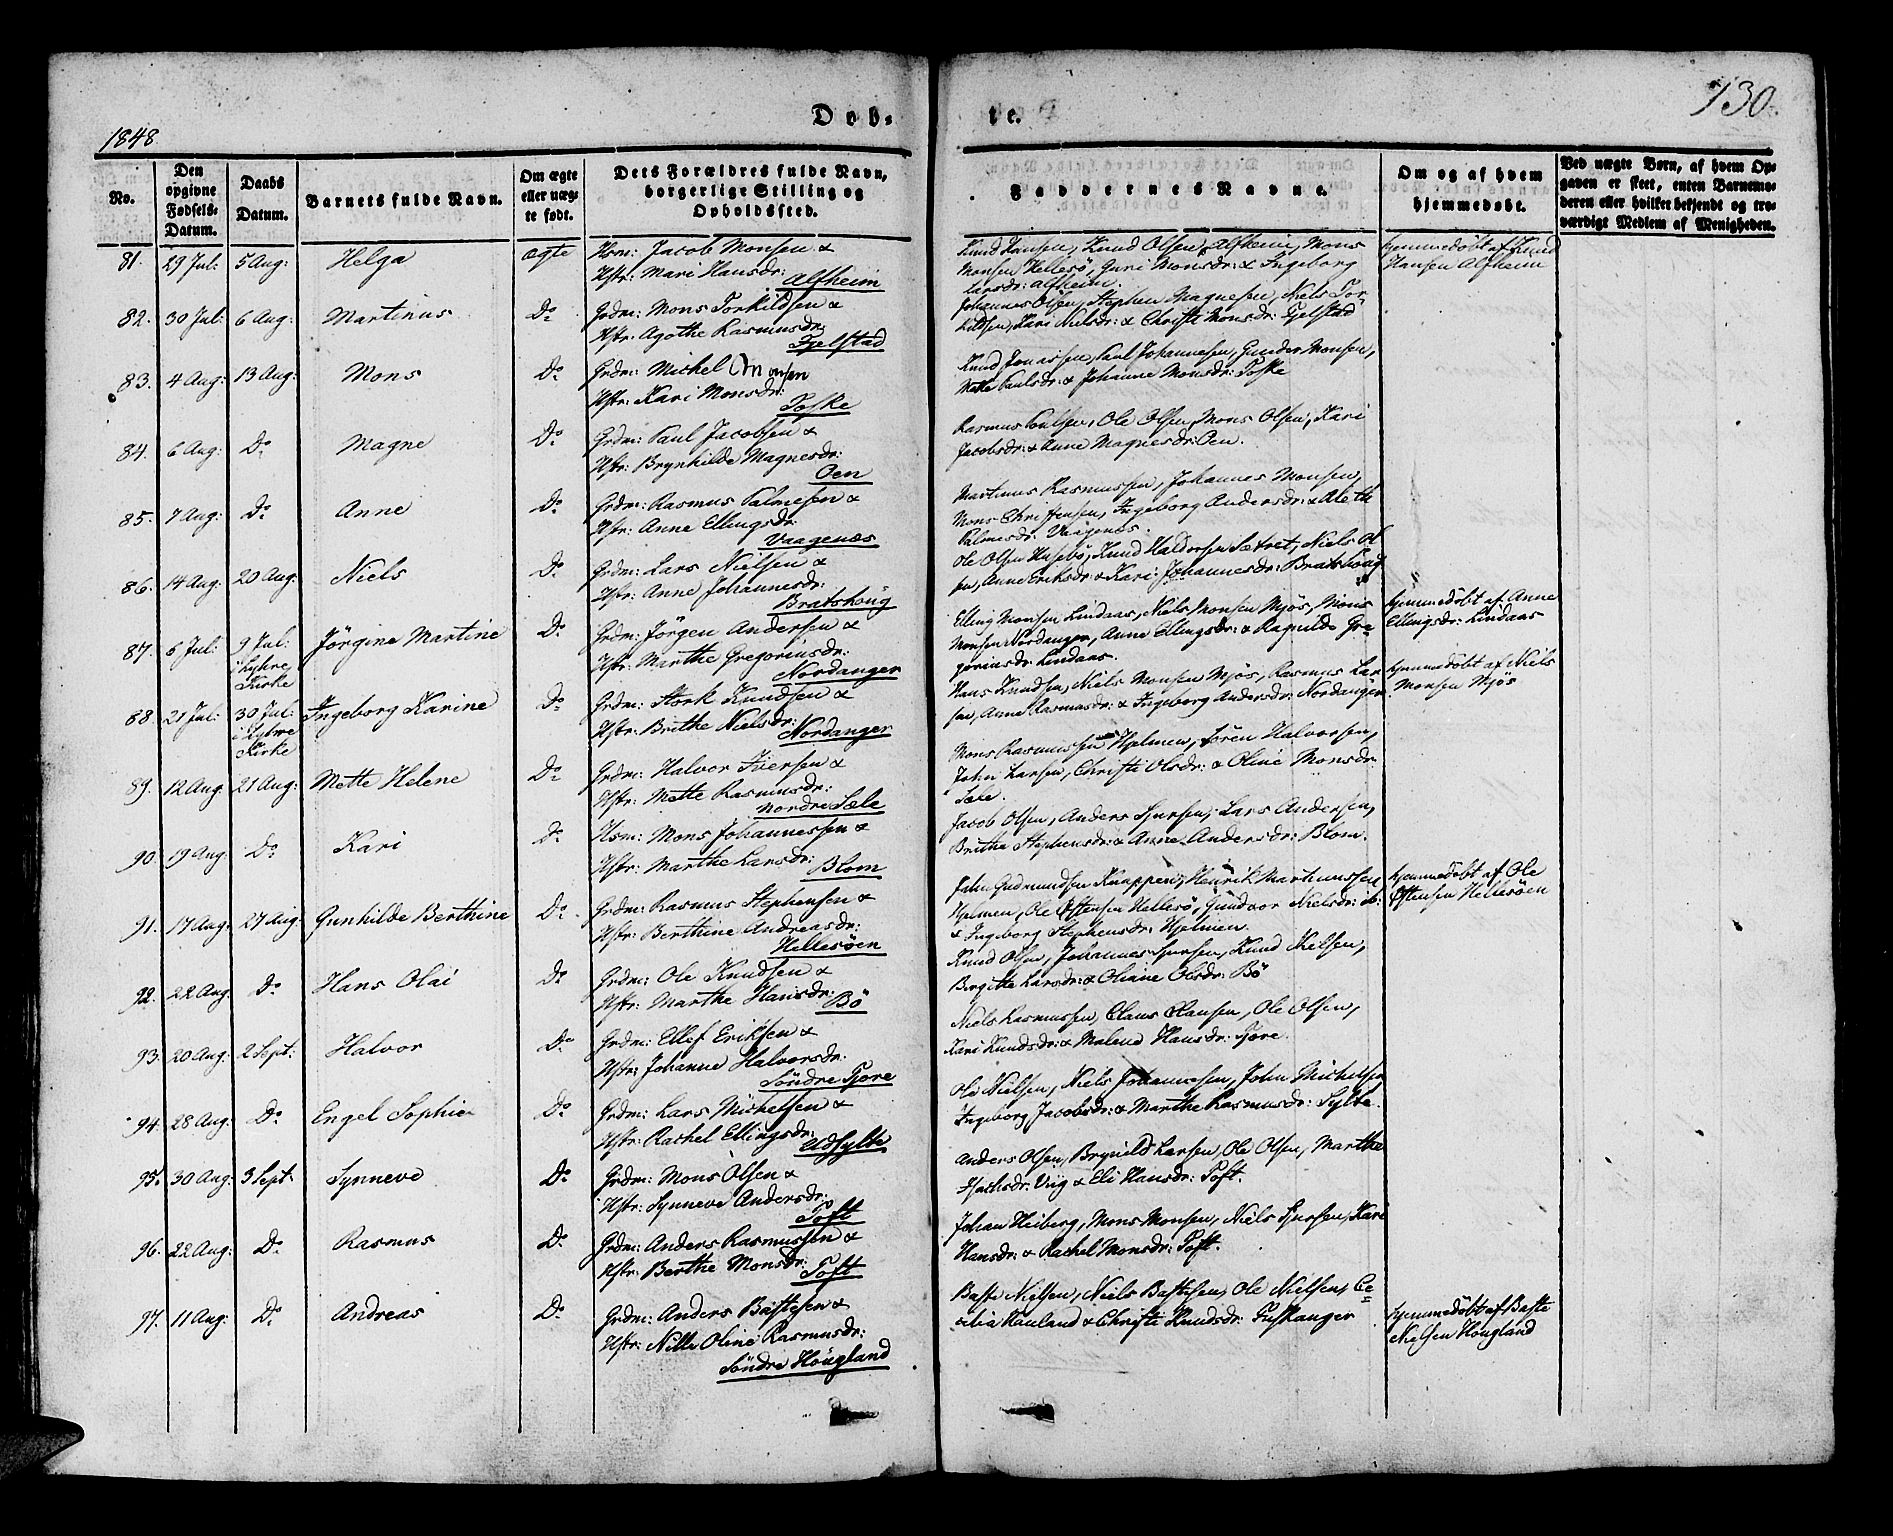 1848.
Døb-
te.
130.
No.
Den opgivne Fødsels-Datum.
Daabs Datum.
Barnets fulde Navn.
Om ægte eller uægte født.
Dets Forældres fulde Navn, borgerlige Stilling og Opholdssted.
Faddernes Navne.
Om og af hvem hjemmedøbt.
Ved uægte Børn, af hvem Opgaven er skeet, enten Barnemoderen eller hvilket bekjendt og troværdigt Medlem af Menigheden.
81. 29 Jul: 5 Aug: Helga ægte Hsm: Jacob Monsen &
Hstr: Mari Hansdr:
Alfheim
Knud Hansen, Knud Olsen, Alfheim, Mons
Monsen Hellesö, Guri Monsdr: & Ingeborg
Larsdr: Alfheim.
hjemmedöbt af Knud
Hansen Alfheim
82. 30 Jul: 6 Aug: Martinus Do Grdm: Mons Torkildsen &
Hstr: Agathe Rasmusdr:
Fjelstad
Johannes Olsen, Stephen Magnesen, Niels Tor-
kildsen, Kari Nielsdr: & Christi Monsdr: Fjelstad
83. 4 Aug: 13 Aug: Mons Do Grdm: Michel Monsen
Hstr: Kari Monsdr:
Toske
Knud Jonassen, Paul Johannesen, Gunder Monsen,
Mette Paulsdr: & Johanne Monsdr: Toske
84. 6 Aug: Do Magne Do Grdm: Paul Jacobsen &
Hstr: Brynhilde Magnesdr:
Oen
Rasmus Paulsen, Ole Olsen, Mons Olsen, Kari
Jacobsdr: & Anne Magnesdr: Oen.
85. 7 Aug: Do Anne Do Grdm: Rasmus Palmesen &
Hstr: Anne Ellingsdr:
Vaagenæs
Martinus Rasmussen, Johannes Monsen,
Mons Christensen, Ingeborg Andersdr: &
Palmesdr: Vaagenæs.
86. 14 Aug: 20 Aug: Niels Do Grdm: Lars Nielsen &
Hstr: Anne Johannesdr:
Bratshoug
Ole Olsen Husebö, Knud Haldorsen Sætret, Niels Ol
sen, Anne Eriksdr: & Kari Johannesdr: Bratshoug
87. 6 Jul: 9 Jul: i Lyhre Kirke Jörgine Martine Do Grdm: Jörgen Andersen &
Hstr: Marthe Gregoriusdr:
Nordanger
Elling Monsen Lindaas, Niels Monsen Mjös, Mons
Monsen Nordanger, Anne Ellingsdr: & Ragnilde Gre-
goriusdr: Lindaas.
hjemmedöbt af Anne
Ellingsdr: Lindaas
88. 21 Jul: 30 Jul: i Lyhre Kirke Ingeborg Karine Do Grdm: Stork Knudsen &
Hstr: Brithe Nielsdr:
Nordanger
Hans Knudsen, Niels Monsen Mjös, Rasmus Lar
sen, Anne Rasmusdr: & Ingeborg Andersdr: Nordanger
hjemmedöbt af Niels
Monsen Mjös
89. 12 Aug: 21 Aug: Mette Helene Do Grdm: Halvor Iversen &
Hstr: Mette Rasmusdr:
Nordre Sæle
Mons Rasmussen Hjelmen, Sören Halvorsen,
John Larsen, Christi Olsdr: & Oline Monsdr:
Sæle.
90. 19 Aug: Do Kari Do Hsm: Mons Johannessen &
Hstr: Marthe Larsdr:
Blom
Jacob Olsen, Anders Sjursen, Lars Andersen,
Brithe Stephensdr: & Anne Andersdr: Blom.
91. 17 Aug: 27 Aug: Gunhilde Berthine Do Grdm: Rasmus Stephensen &
Hstr: Berthine Andreasdr:
Hellesöen
John Gudmundsen Knappen, Henrik Martinussen
Hjelmen, Ole Östensen Hellesö, Gundvor Nielsdr: ib:
& Ingeborg Stephensdr: Hjelmen.
hjemmedöbt af Ole
Östensen Hellesöen
92. 22 Aug: Do Hans Olai Do Grdm: Ole Knudsen &
Hstr: Marthe Hansdr:
Bö
Knud Olsen, Johannes Sjursen, Knud Nielsen,
Birgitte Larsdr: & Oliane Olsdr: Bö
93. 20 Aug: 2 Sept: Halvor Do Grdm: Ellef Eriksen &
Hstr: Johanne Halvorsdr:
Söndre Tjore
Niels Rasmussen, Claus Clausen, Ole Olsen,
Kari Knudsdr: & Malene Hansdr: Tjore.
94. 28 Aug: Do Engel Sophie Do Grdm: Lars Michelsen &
Hstr: Rachel Ellingsdr:
Udsylte
Ole Nielsen, Niels Johannesen, John Michelsen
Ingeborg Jacobsdr: & Marthe Rasmusdr: Sylte.
95. 30 Aug: 3 Sept: Synneve Do Grdm: Mons Olsen &
Hstr: Synneve Andersdr:
Toft
Anders Olsen, Brynild Larsen, Ole Olsen, Marthe
Isachsdr: Vug & Eli Hansdr: Toft.
96. 22 Aug: Do Rasmus Do Grdm: Anders Rasmussen &
Hstr: Berthe Monsdr:
Toft
Johan Heiberg, Mons Monsen, Niels Sjursen, Kari
Hansdr: & Rachel Monsdr: Toft.
97. 11 Aug: Do Andreas Do Grdm: Anders Bastesen &
Hstr: Nille Oline Rasmusdr:
Söndre Hougland
Baste Nielsen, Niels Bastesen, Ole Nielsen, Ce-
cilia Rauland & Christi Knudsdr: Fuskanger
hjemmedöbt af Baste
Nielsen Hougland